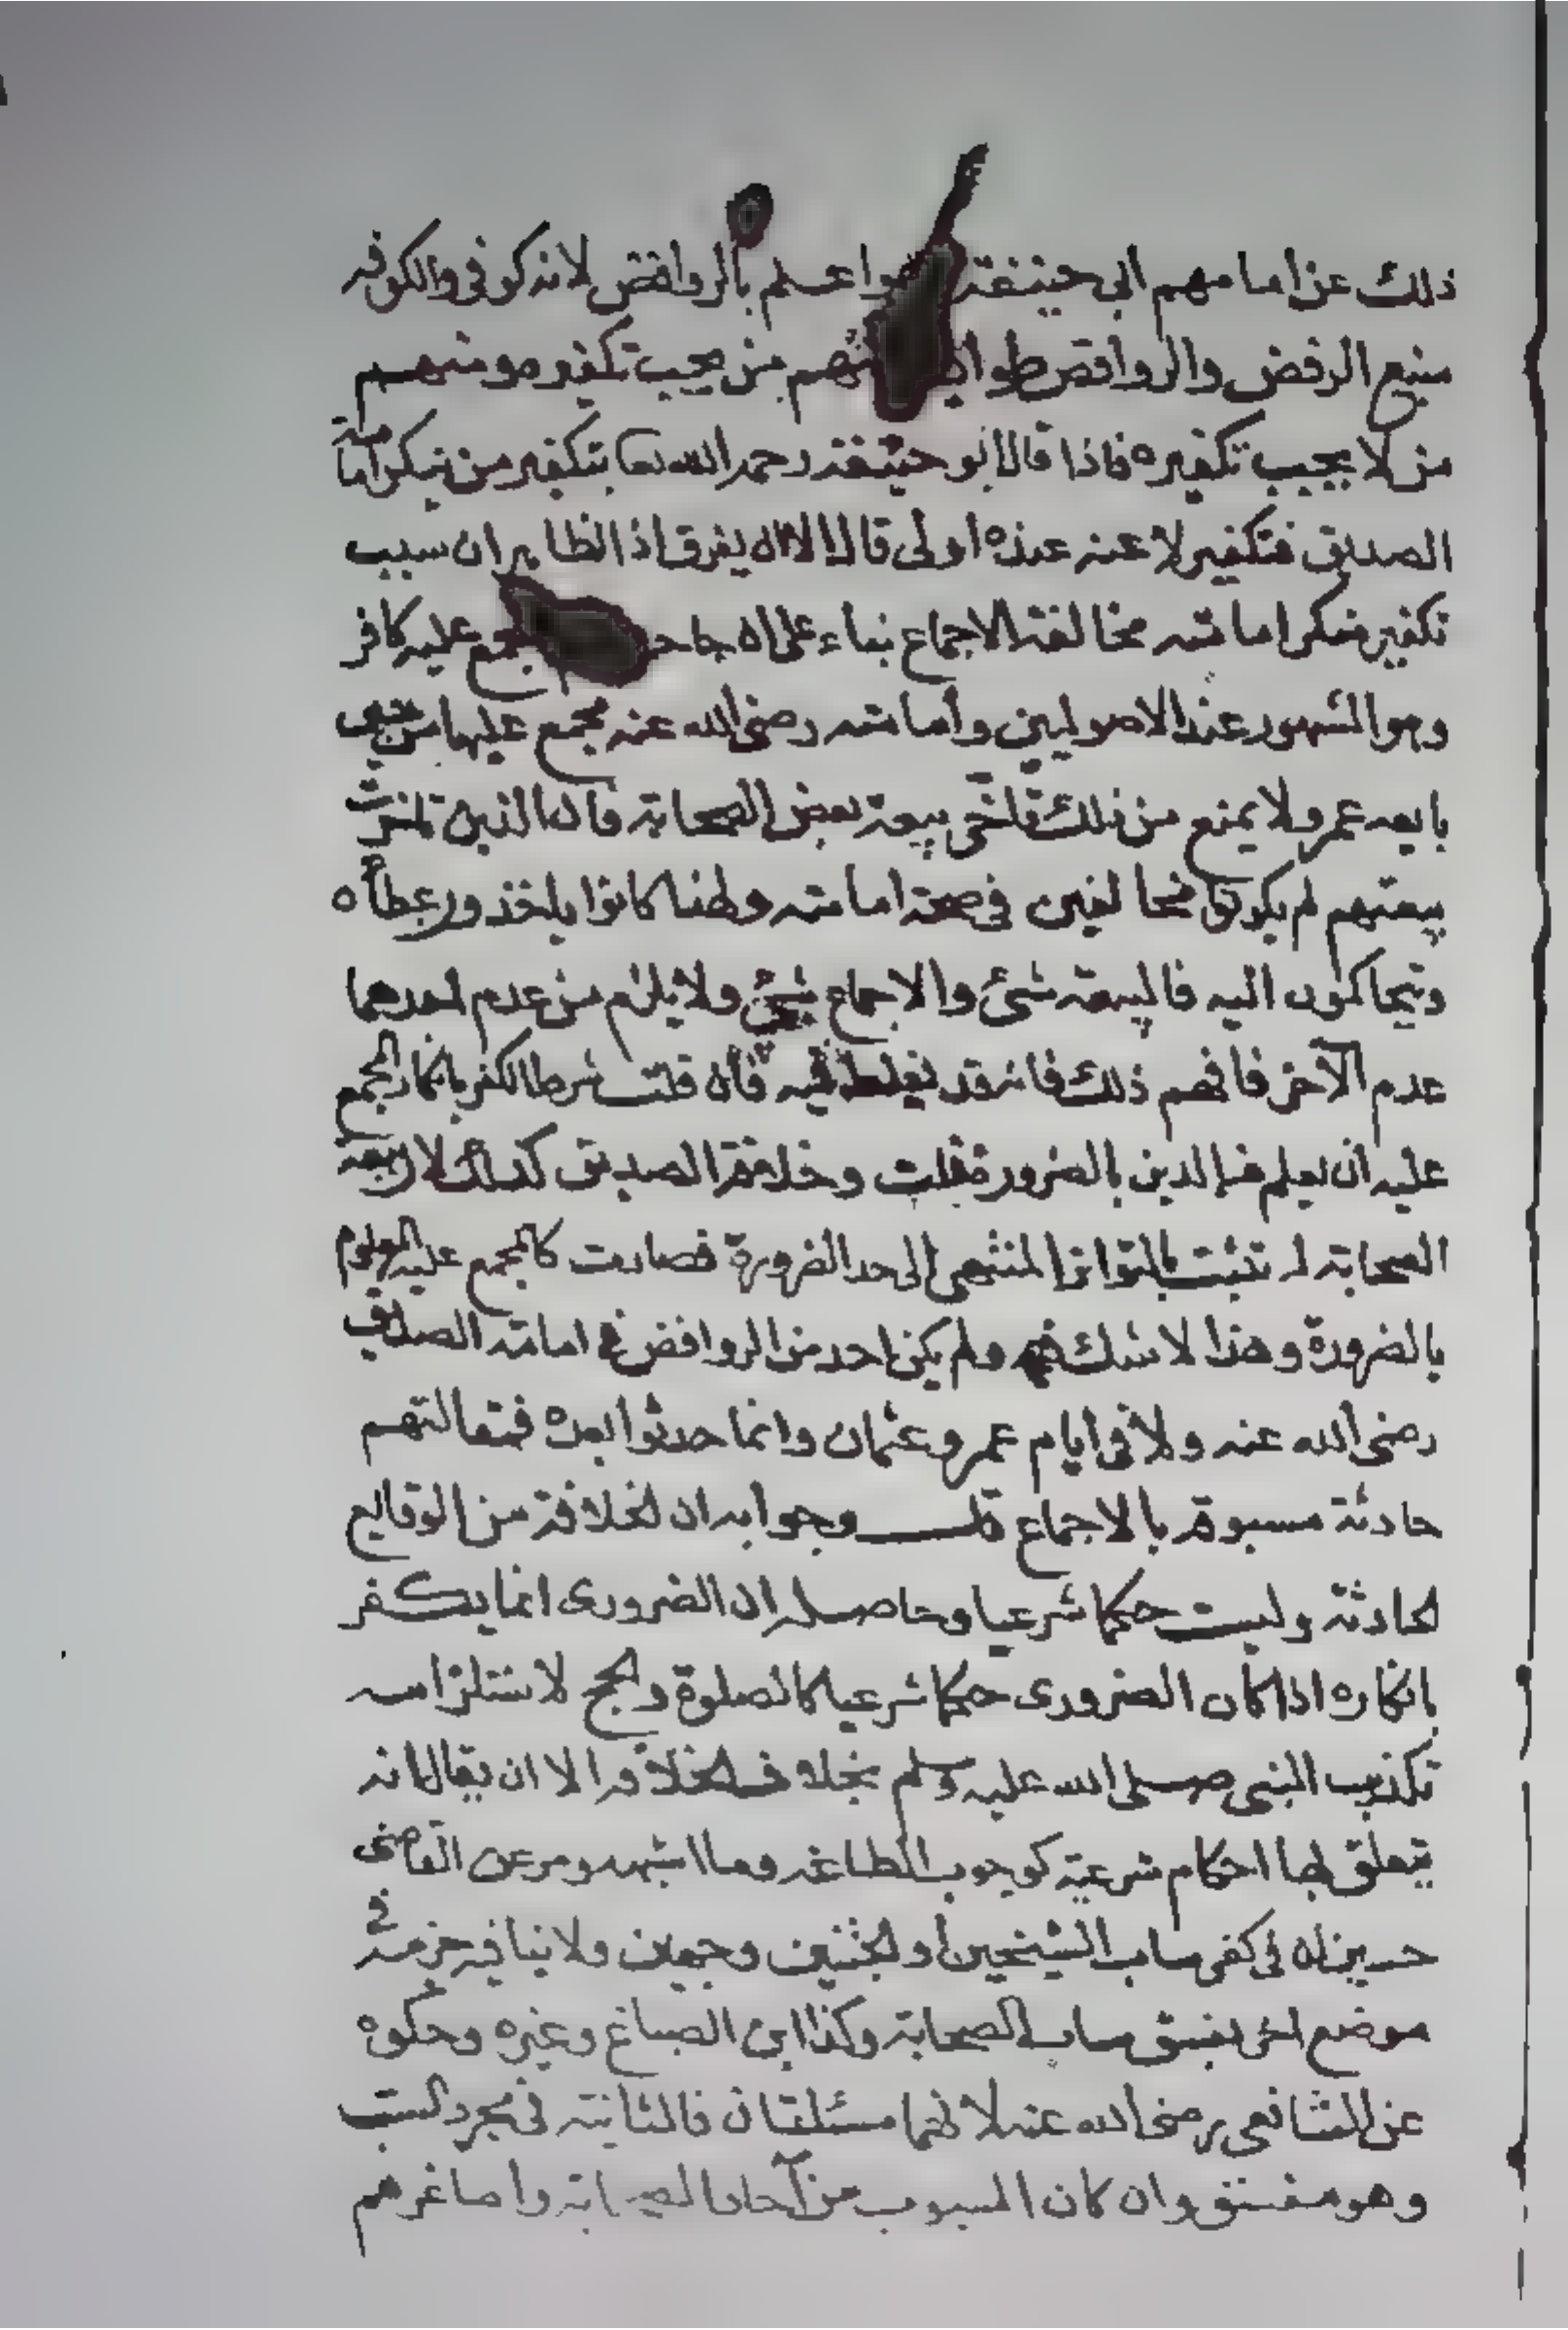 ذلك عن امامهم ابي حنيفة وهو اعلم بالروافض لانه كوفي والكوفه
منبع الروفض والروافض طوا منهم من يجب تكفيره ومنهم
من لا يجب تكفيره فاذا قال ابو حنيفة رحمه الله تعا بتكفير من ينكر امامة
الصديق فتكفير لاعنه عنده اولى قال الا ان يفرق اذ الظاهر ان سبب
تكفير منكر امامته مخالفة الاجماع بناء على ان جاحد المجمع عليه كافر
وهو المشهور عند الاصوليين وأمامته رضي الله عنه مجمع عليها من حين
بايعه عمر ولا يمنع من ذلك تأخر بيعة بعض الصحابة فان الذين تأخرت
بيعتهم لم يكونوا مخالفين في صحة امامته ولهذا كانوا يأخذون عطاءه
ويتحاكمون اليه فالبيعة شئ والاجماع شئ ولا يلزم من عدم احدهما
عدم الآخر فافهم ذلك فانه قد يغلط فيه فأن قلت شرط الكفر بانكار المجمع
عليه ان يعلم من الدين بالضرورة قلت وخلافة الصديق كذلك لان بيعة
الصحابة له تثبت بالتواتر المنتهي الى حد الضرورة فصارت كالمجمع عليه المعلوم
بالضرورة وهذا لا شك فيه ولم يكن احد من الروافض في امامة الصديق
رضي الله عنه ولا في ايام عمر وعثمان وانما حدثوا بعده فمقالتهم
حادثة مسبوقة بالاجماع قلت وجوابه ان الخلافة من الوقايع
لحادثة وليست حكما شرعيا وحاصله ان الضروري انما يكفر
بانكاره اذا كان الضروري حكما شرعيا كالصلوة والحج لاستلزامه
تكذيب النبي صلى الله عليه وسلم بخلاف الخلافه الا ان يقال انه
يتعلق بها احكام شرعية كوجوب الطاعه وما اشبهه ومر عن القاضي
حسين ان في كفر ساب الشيخين أو الختنين وجهين ولا ينافيه جزمه في
موضع اخر بفسق ساب الصحابة وكذا ابن الصباغ وغيره وحكوه
عن الشافعي رضي الله عنه لانهما مسئلتان فالثانية في مجرد السب
وهو مفسق وان كان المسبوب من آحاد الصحابة واصاغرهم